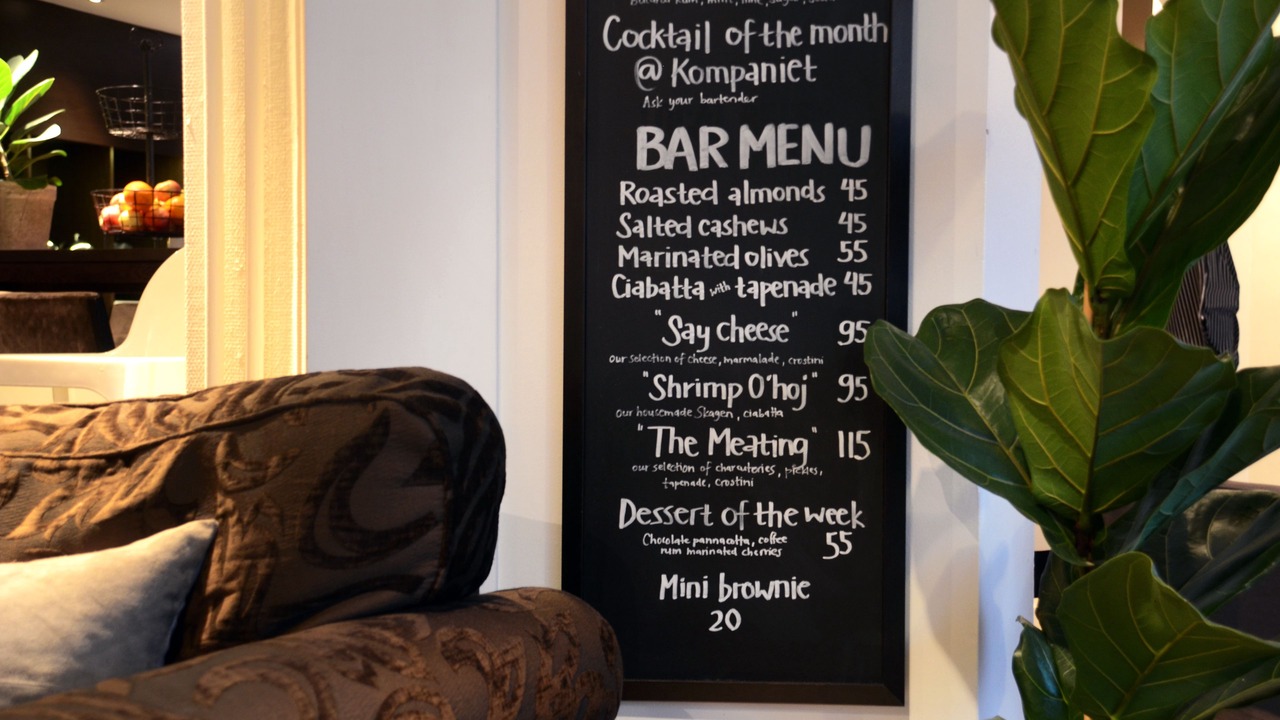 Cocktail of the month
@ Kompaniet
Ask your bartender
BAR MENU
Roasted almonds 45
Salted cashews 45
Marinated olives 55
Ciabatta with tapenade 45
"Say cheese" 95
our selection of cheese, marmalade, crostini
"Shrimp O'hoj" 95
our housemade Skagen, ciabatta
"The Meating" 115
our selection of charcuteries, pickles,
tapenade, crostini
Dessert of the week
Chocolate pannacotta, coffee
rum marinated cherries 55
Mini brownie
20